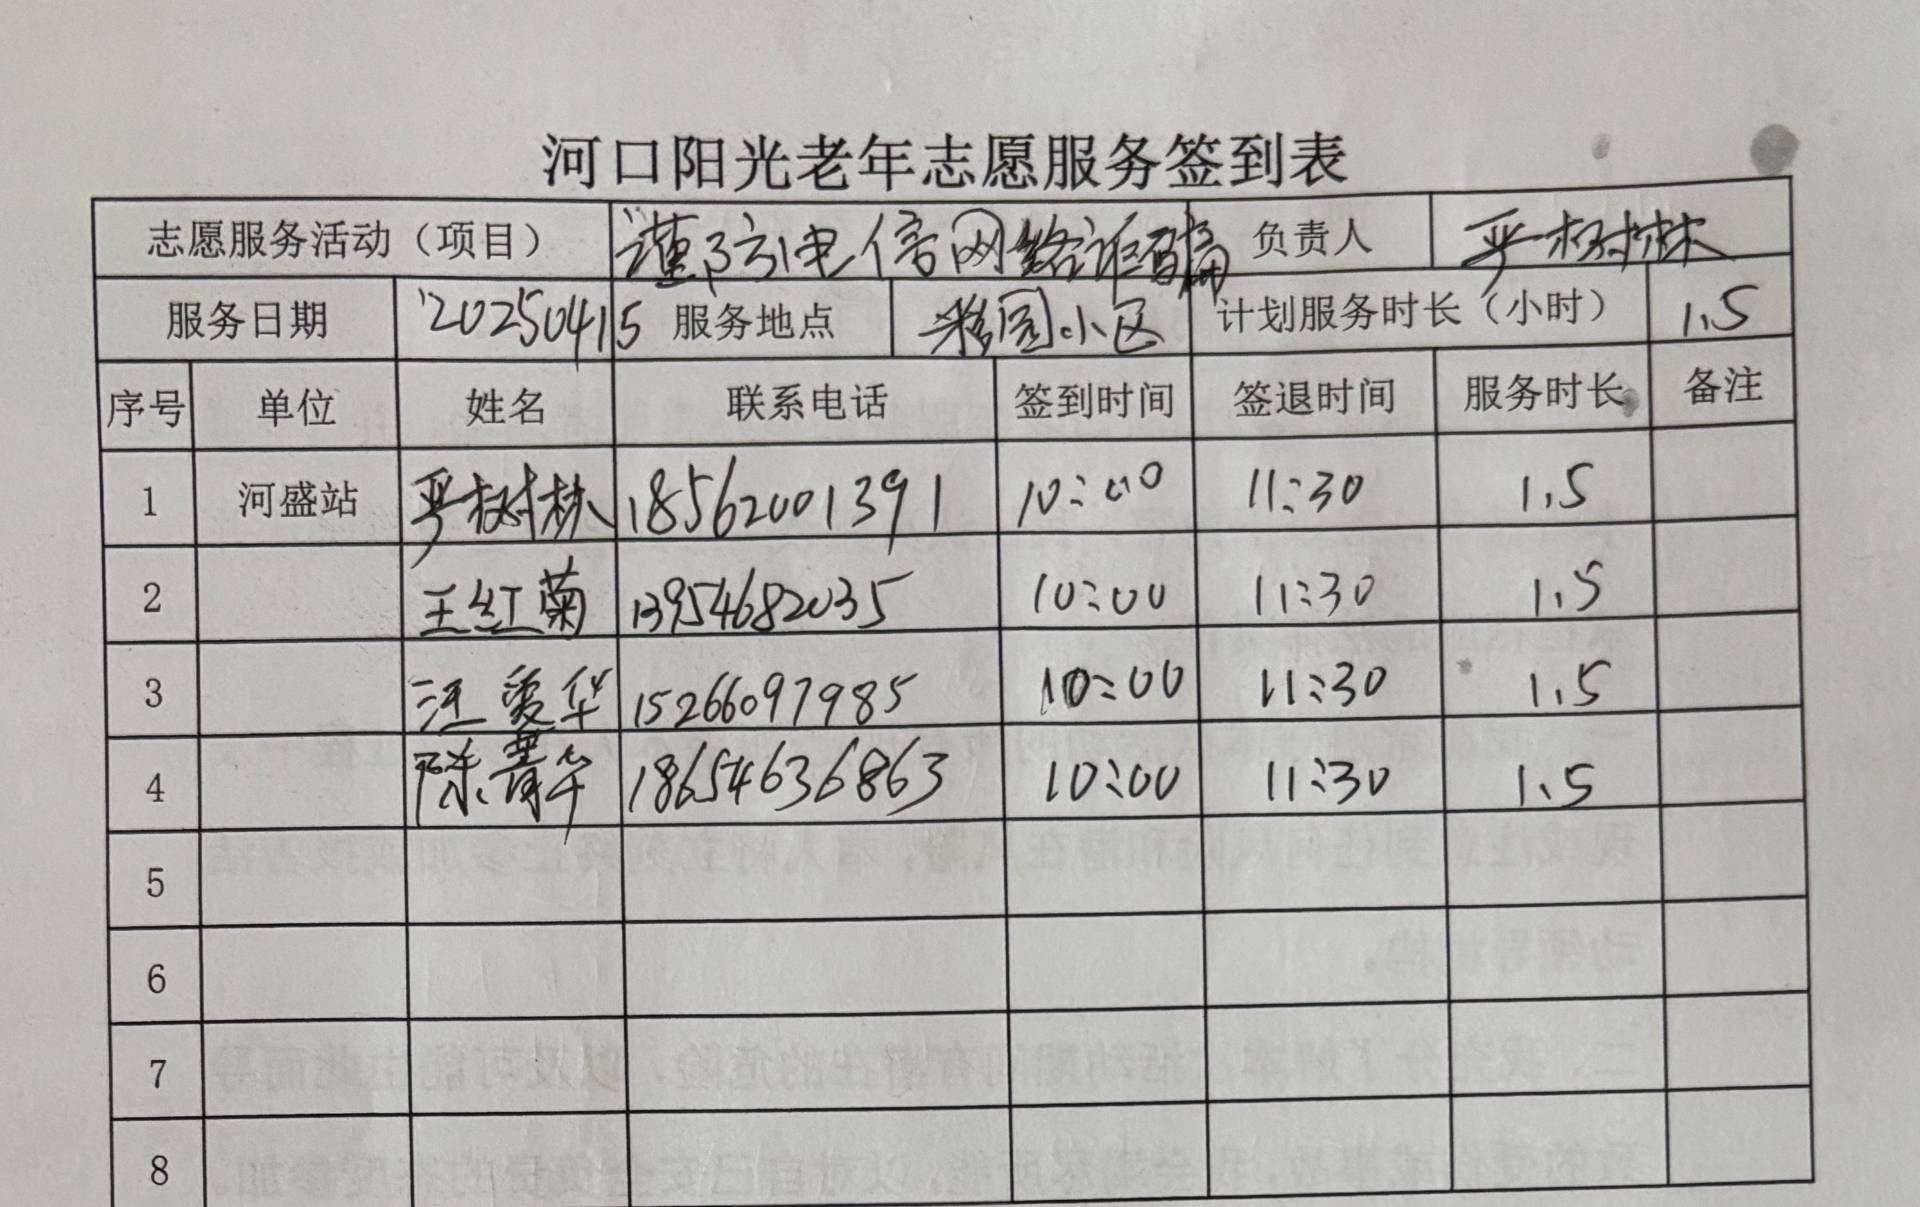 河口阳光老年志愿服务签到表
志愿服务活动（项目） 谨防电信网络诈骗 负责人 严树林
服务日期 20250415 服务地点 园小区 计划服务时长（小时） 1.5
序号 单位 姓名 联系电话 签到时间 签退时间 服务时长 备注
1 河盛站 严树林 18562001391 10:00 11:30 1.5
2 王红菊 13954682035 10:00 11:30 1.5
3 汪爱华 15266097985 10:00 11:30 1.5
4 陈菁华 18654636863 10:00 11:30 1.5
5
6
7
8